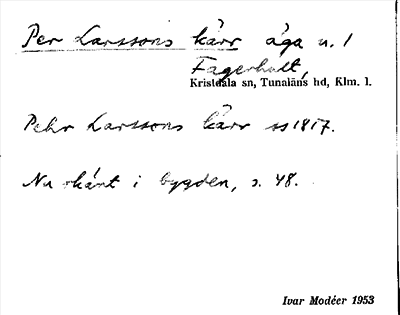 Per Larssons kärr äga u. 1
Fagerhult,
Kristdala sn, Tunaläns hd, Klm. l.
Pehr Larssons kärr ss 1817.
Nu okänt i bygden, s. 48.
Ivar Modéer 1953